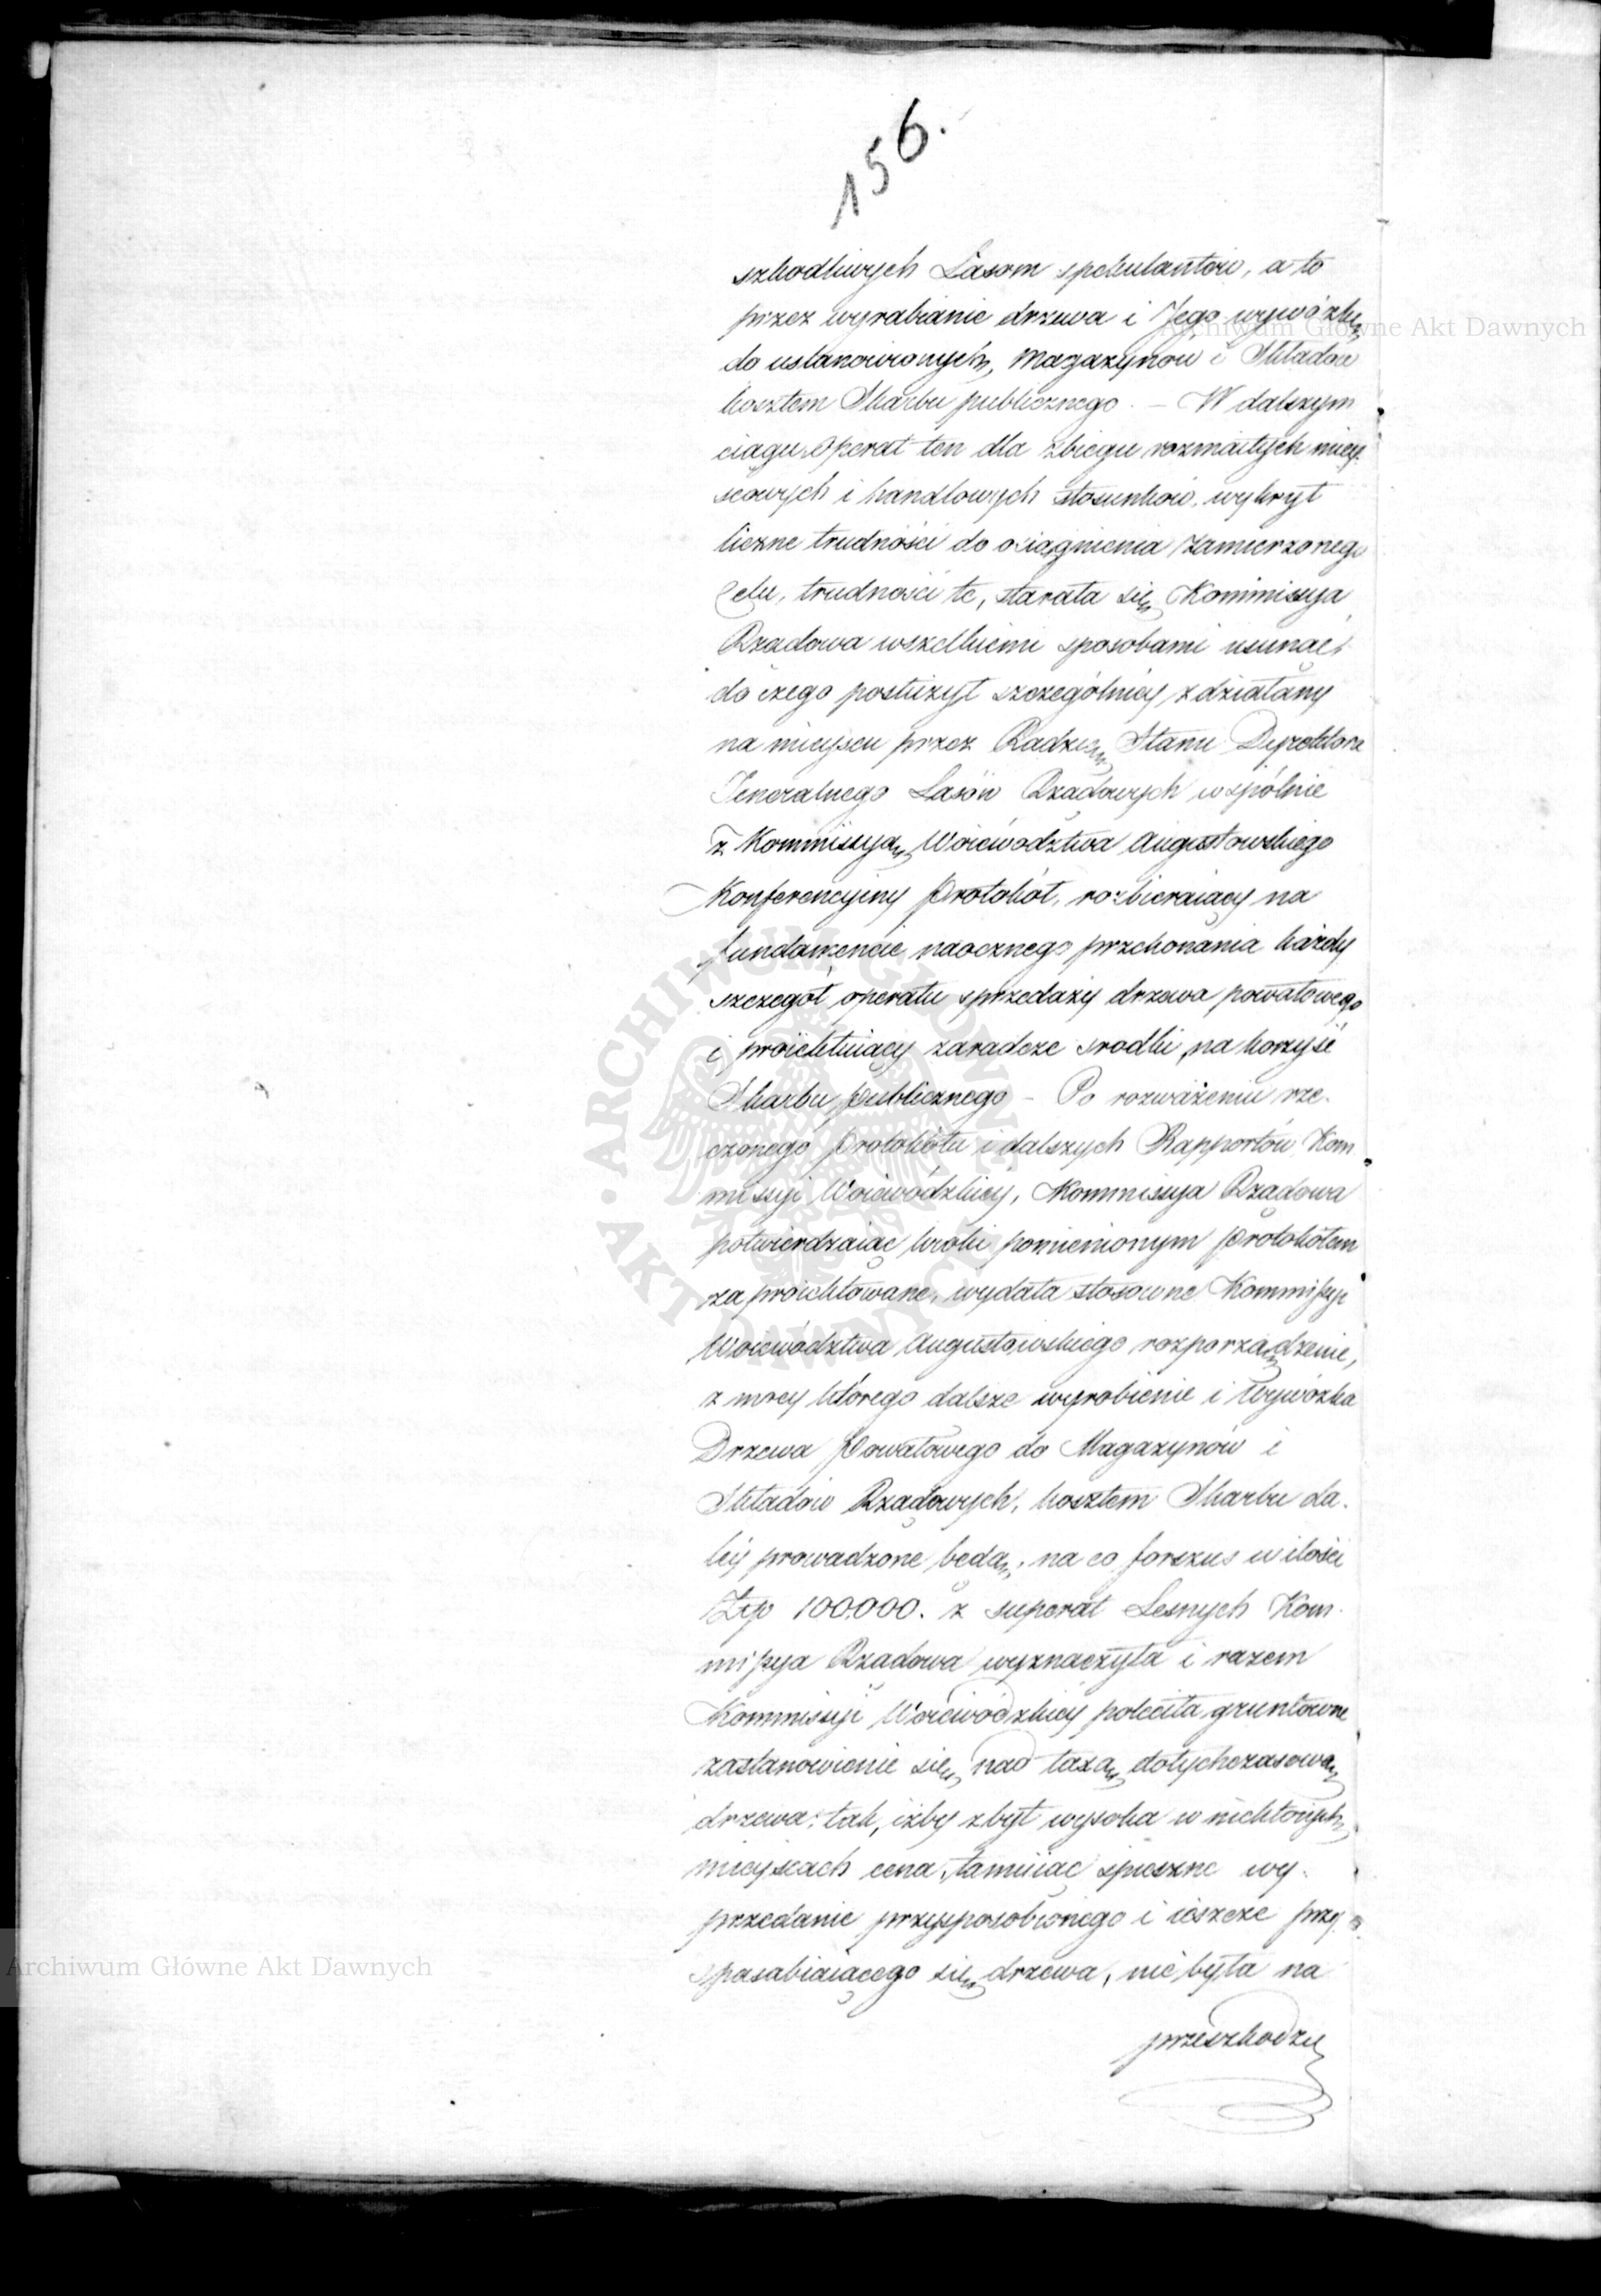 156.
szkodliwych Lasom spekulantów, a to
przez wyrabianie drzewa i Jego wywózkę
do ustanowionych, Magazynów i Składów
kosztem Skarbu publicznego. – W dalszym
ciągu Operat ten dla zbiegu rozmaitych miey-
scowych i handlowych stosunków, wykrył
liczne trudności do osiągnienia zamierzonego
Celu, trudności te, starała się Kommissya
Rządowa wszelkiemi sposobami usunąć,
do czego posłużył szczególniey zdziałany
na mieyscu przez Radzcę Stanu Dyrektora
Jeneralnego Lasów Rządowych wspólnie
z Kommissyą Woiewództwa Augustowskiego
Konferencyiny Protokół, rozbieraiący na
fundamencie naocznego przekonania każdy
szczegół operatu sprzedaży drzewa powałowego
i proiektuiący zaradcze srodki na korzyść
Skarbu publicznego – Po rozważeniu rze-
czonego Protokółu i dalszych Rapportów Kom-
missyi Woiewódzkiey, Kommissya Rządowa
potwierdzaiąc kroki pomienionym Protokółem
zaproiektowane, wydała stosowne Kommissyi
Woiewództwa Augustowskiego rozporządzenie,
z mocy którego dalsze wyrobienie i Wywózka
Drzewa Powałowego do Magazynów i
Składów Rządowych, kosztem Skarbu da-
ley prowadzone będą, na co forszus w ilości
Złp 100.000. z superat Lesnych Kom-
missya Rządowa wyznaczyła i razem
Kommissyi Woiewódzkiey poleciła gruntowne
zastanowienie się nad taxą dotychczasową
drzewa: tak, iżby zbyt wysoka w niektórych
mieyscach cena, tamuiąc spieszne wy-
przedanie przysposobionego i ieszcze przy-
sposabiaiącego się drzewa, nie była na
przeszkodzie
Archiwum Główne Akt Dawnych
Archiwum Główne Akt Dawnych
ARCHIWUM GŁÓWNE
AKT DAWNYCH